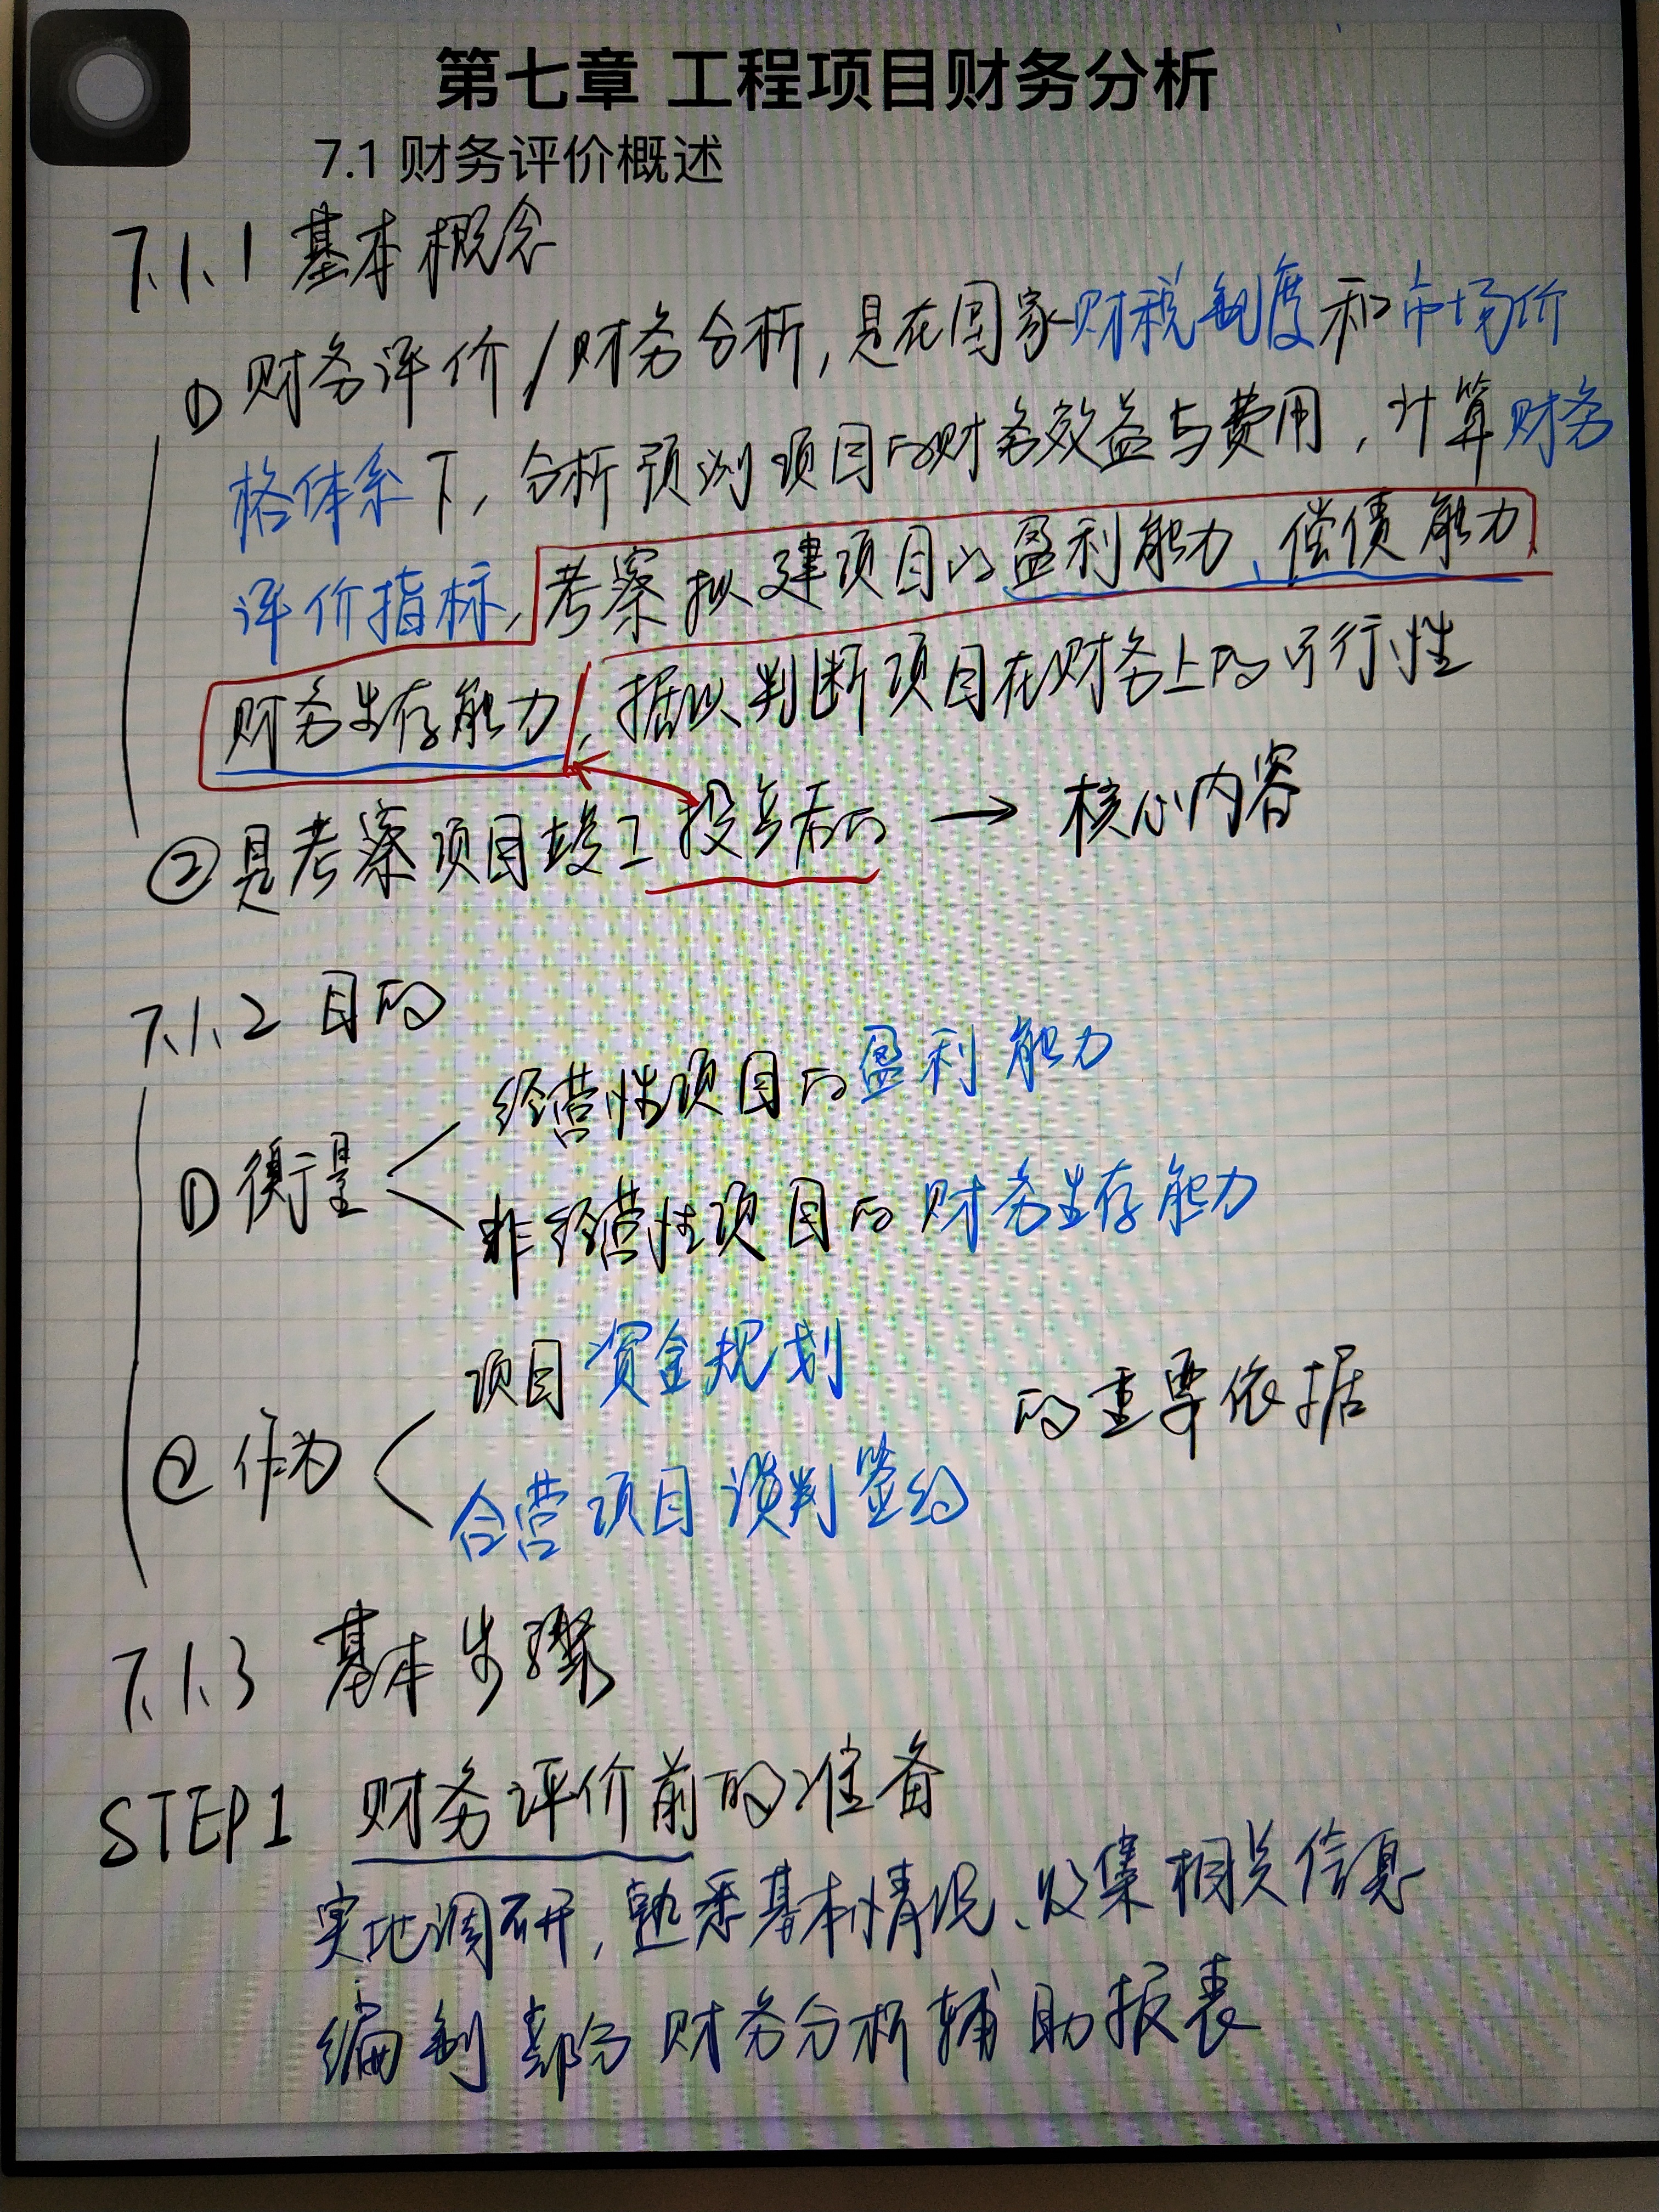 第七章 工程项目财务分析
7.1 财务评价概述
7.1.1 基本概念
① 财务评价/财务分析,是在国家财税制度和市场价
格体系下,分析预测项目的财务效益与费用,计算财务
评价指标,考察拟建项目的盈利能力、偿债能力
财务生存能力,据以判断项目在财务上的可行性
②是考察项目竣工投产后的 → 核心内容
7.1.2 目的
① 衡量
经营性项目的盈利能力
非经营性项目的财务生存能力
② 作为
项目资金规划
合营项目谈判签约
的重要依据
7.1.3 基本步骤
STEP1 财务评价前的准备
实地调研,熟悉基本情况、收集相关信息
编制部分财务分析辅助报表